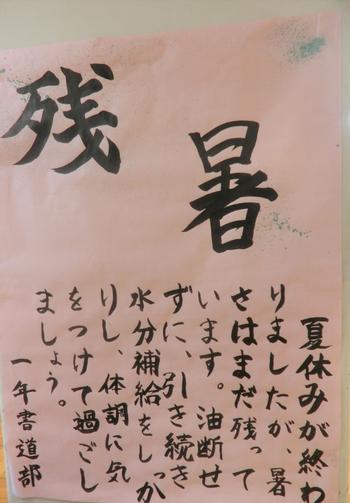 残暑
夏休みが終わ
りましたが、暑
さはまだ残って
います。油断せ
ずに、引き続き
水分補給をしっか
りし、体調に気
をつけて過ごし
ましょう。
一年書道部